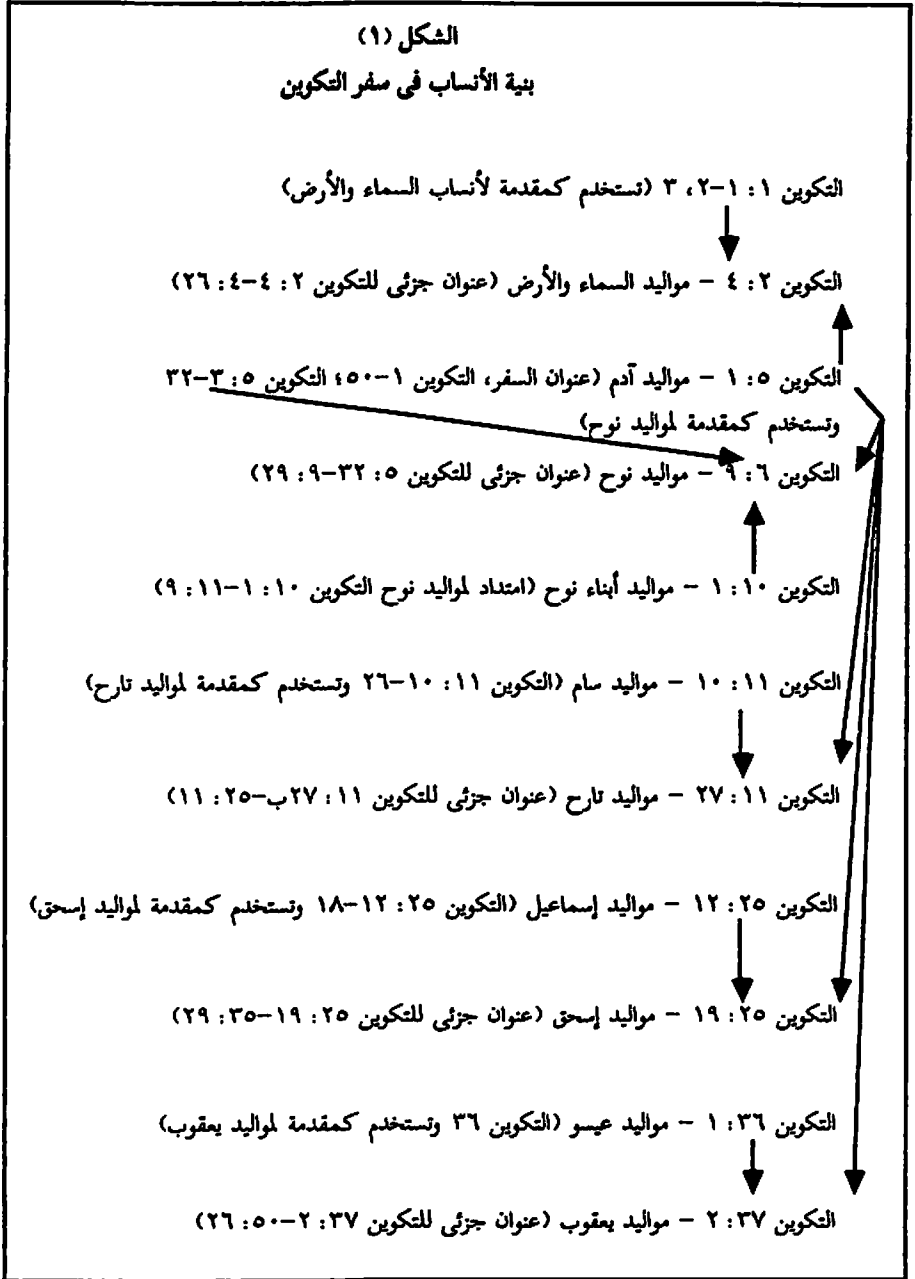 الشكل (١)
بنية الأنساب فى سفر التكوين
التكوين ١ : ١-٢، ٣ (تستخدم كمقدمة لأنساب السماء والأرض)
التكوين ٢ : ٤ – مواليد السماء والأرض (عنوان جزئى للتكوين ٢ : ٤-٤ : ٢٦)
التكوين ٥ : ١ – مواليد آدم (عنوان السفر، التكوين ١-٥٠؛ التكوين ٥ : ٣-٣٢
وتستخدم كمقدمة لمواليد نوح)
التكوين ٦ : ٩ – مواليد نوح (عنوان جزئى للتكوين ٥ : ٣٢-٩ : ٢٩)
التكوين ١٠ : ١ – مواليد أبناء نوح (امتداد لمواليد نوح التكوين ١٠ : ١-١١ : ٩)
التكوين ١١ : ١٠ – مواليد سام (التكوين ١١ : ١٠-٢٦ وتستخدم كمقدمة لمواليد تارح)
التكوين ١١ : ٢٧ – مواليد تارح (عنوان جزئى للتكوين ١١ : ٢٧ب-٢٥ : ١١)
التكوين ٢٥ : ١٢ – مواليد إسماعيل (التكوين ٢٥ : ١٢-١٨ وتستخدم كمقدمة لمواليد إسحق)
التكوين ٢٥ : ١٩ – مواليد إسحق (عنوان جزئى للتكوين ٢٥ : ١٩-٣٥ : ٢٩)
التكوين ٣٦ : ١ – مواليد عيسو (التكوين ٣٦ وتستخدم كمقدمة لمواليد يعقوب)
التكوين ٣٧ : ٢ – مواليد يعقوب (عنوان جزئى للتكوين ٣٧ : ٢-٥٠ : ٢٦)